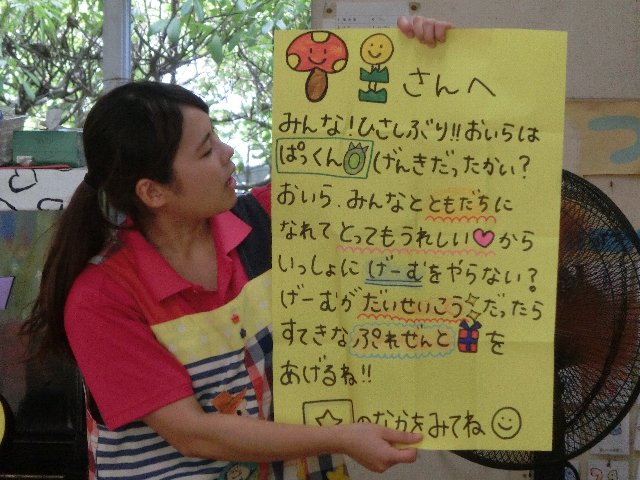 さんへ
みんな!ひさしぶり!!おいらは
ぱっくん げんきだったかい?
おいら、みんなとともだちに
なれてとってもうれしい♥から
いっしょにげーむをやらない?
げーむがだいせいこうだったら
すてきなぷれぜんとを
あげるね!!
☆のなかをみてね